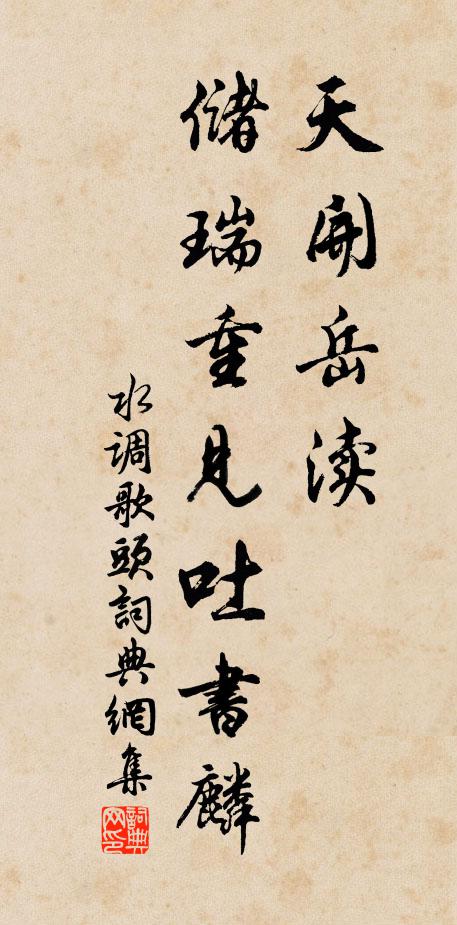 天開岳渎
儲瑞重見吐書麟
水调歌頭詞典網集
詞典网印